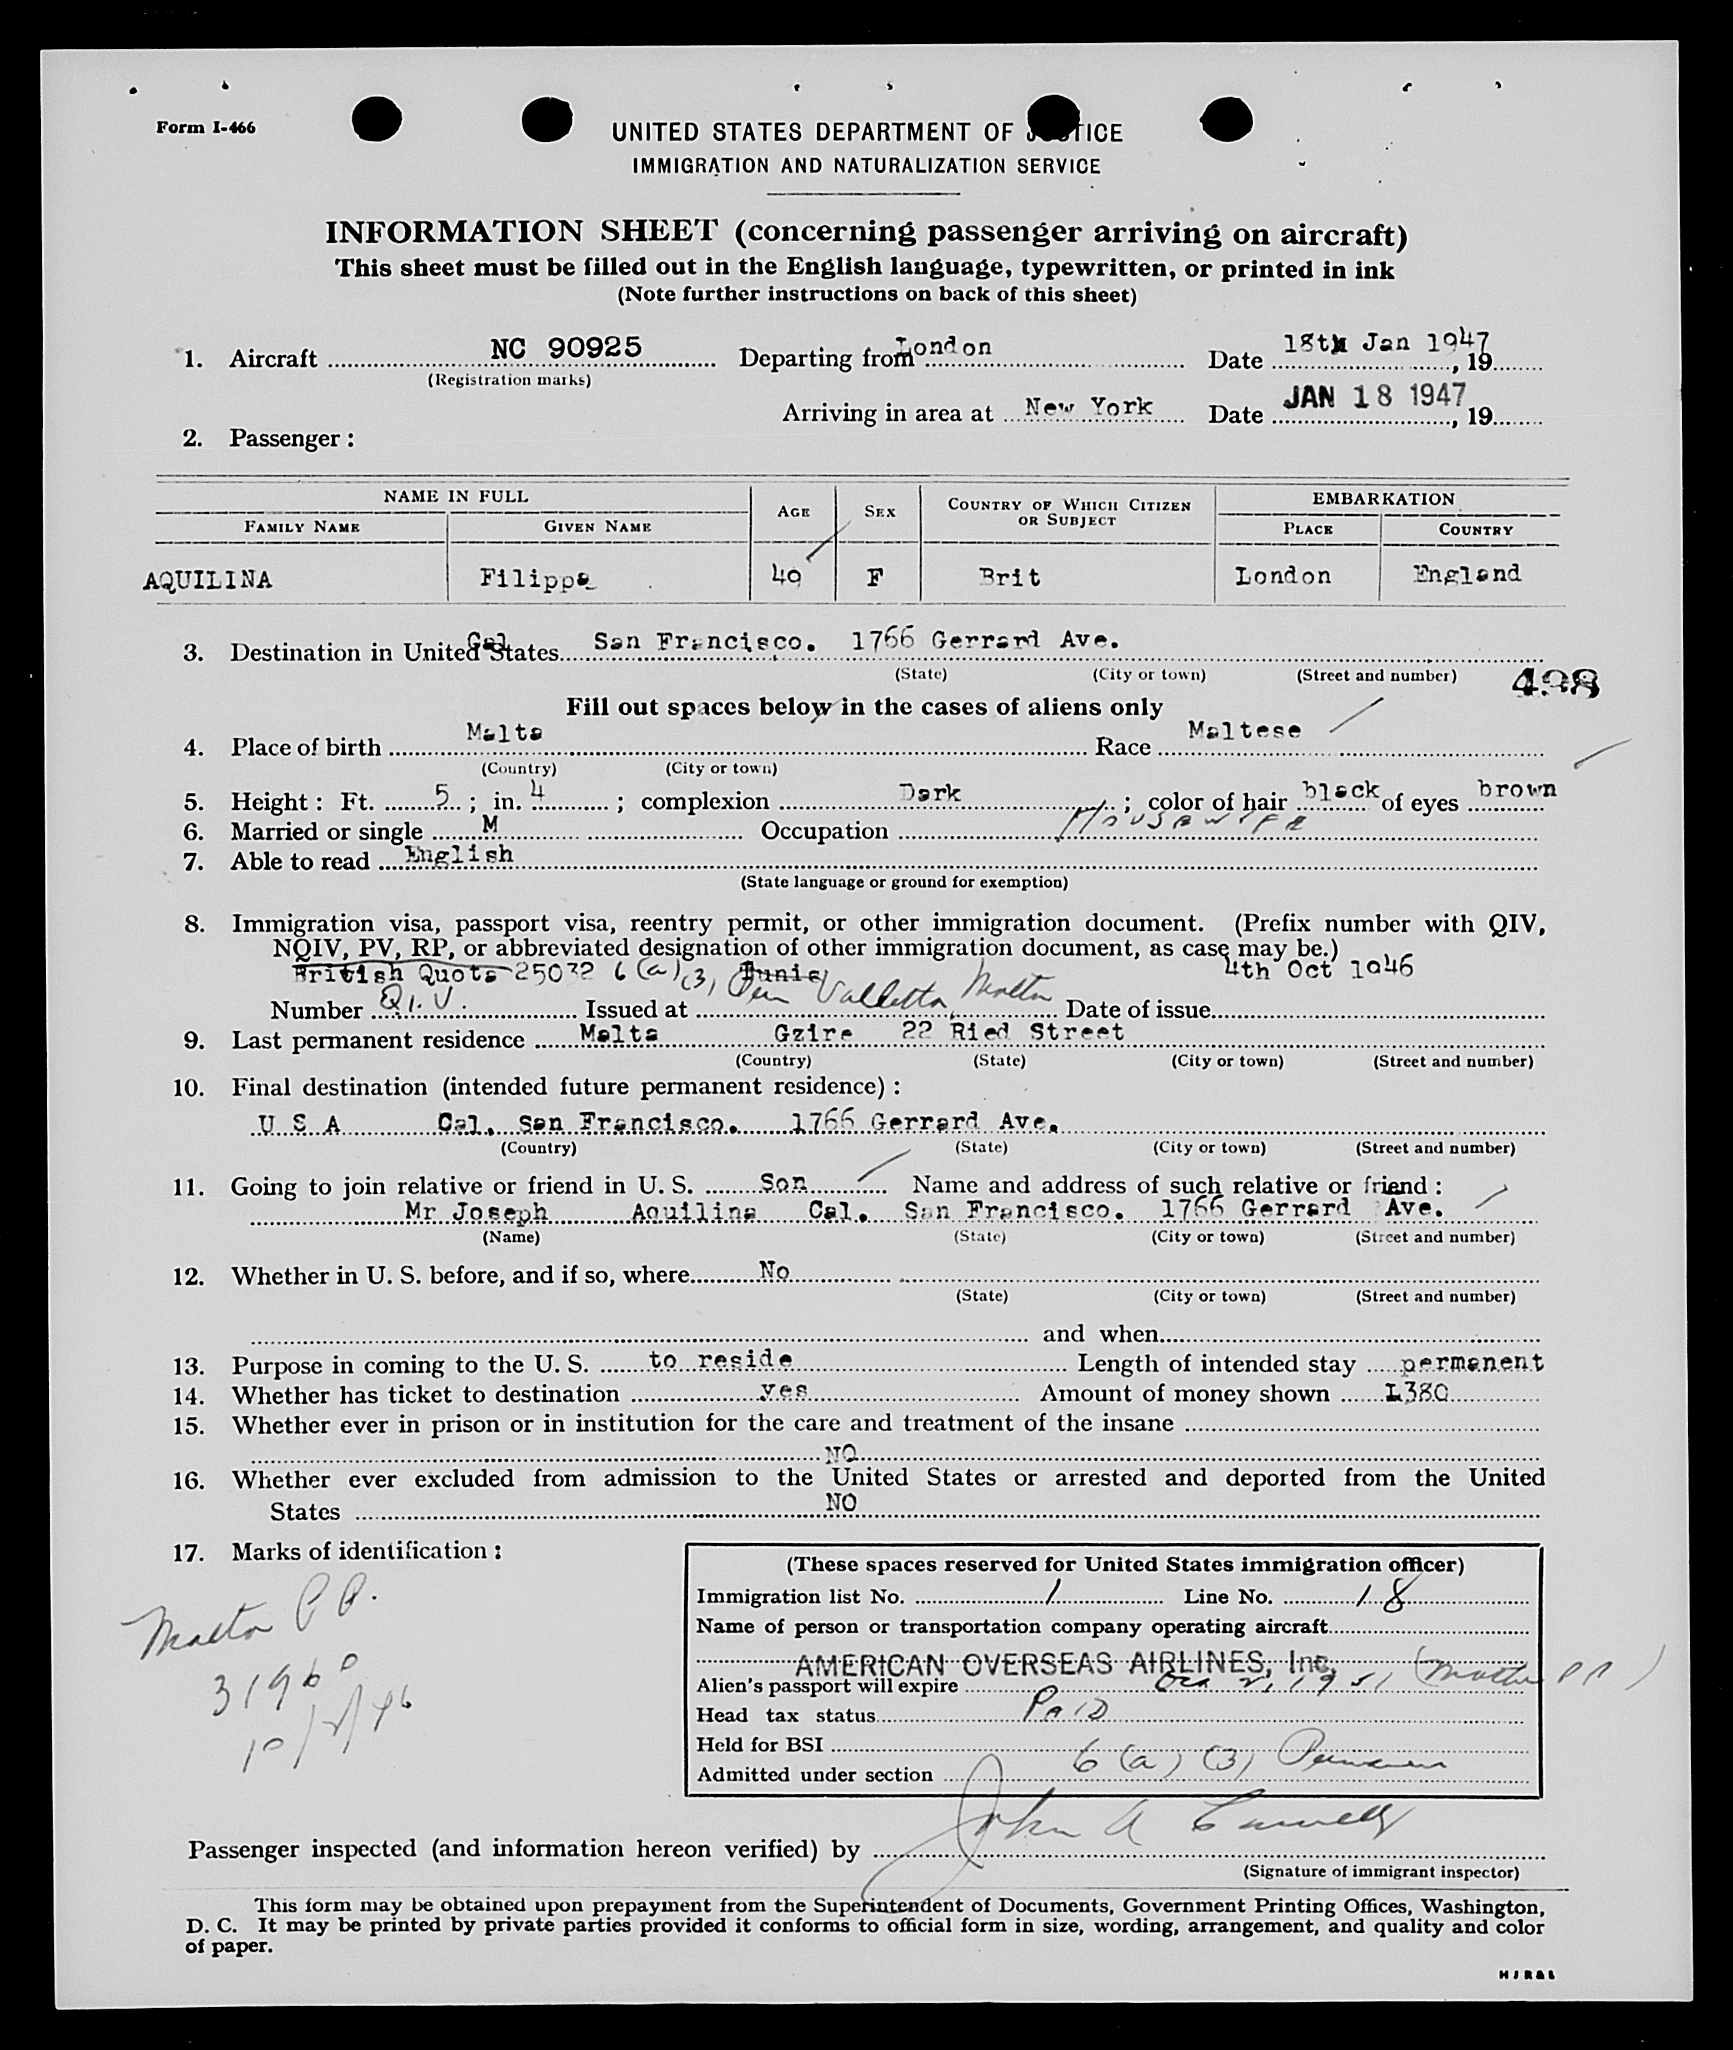 Form I-466
UNITED STATES DEPARTMENT OF JUSTICE
IMMIGRATION AND NATURALIZATION SERVICE
INFORMATION SHEET (concerning passenger arriving on aircraft)
This sheet must be filled out in the English language, typewritten, or printed in ink
(Note further instructions on back of this sheet)
1. Aircraft NC 90925 Departing from London Date 18th Jan 1947, 19
(Registration marks)
Arriving in area at New York Date JAN 18 1947, 19
2. Passenger :
NAME IN FULL AGE SEX COUNTRY OF WHICH CITIZEN OR SUBJECT EMBARKATION
FAMILY NAME GIVEN NAME PLACE COUNTRY
AQUILINA Filippa 49 F Brit London England
3. Destination in United States Cal San Francisco. 1766 Gerrard Ave.
(State) (City or town) (Street and number)
498
Fill out spaces below in the cases of aliens only
4. Place of birth Malta Race Maltese
(Country) (City or town)
5. Height : Ft. 5 ; in. 4 ; complexion Dark ; color of hair black of eyes brown
6. Married or single M Occupation HOUSEWIFE
7. Able to read English
(State language or ground for exemption)
8. Immigration visa, passport visa, reentry permit, or other immigration document. (Prefix number with QIV,
NQIV, PV, RP, or abbreviated designation of other immigration document, as case may be.)
British Quota 25032 6(a)(3) Tunis 4th Oct 1946
Number Q.I.V. Issued at Valletta Malta Date of issue
9. Last permanent residence Malta Gzira 22 Ried Street
(Country) (State) (City or town) (Street and number)
10. Final destination (intended future permanent residence) :
U S A Cal. San Francisco. 1766 Gerrard Ave.
(Country) (State) (City or town) (Street and number)
11. Going to join relative or friend in U. S. Son Name and address of such relative or friend :
Mr Joseph Aquilina Cal. San Francisco. 1766 Gerrard Ave.
(Name) (State) (City or town) (Street and number)
12. Whether in U. S. before, and if so, where No
(State) (City or town) (Street and number)
and when
13. Purpose in coming to the U. S. to reside Length of intended stay permanent
14. Whether has ticket to destination yes Amount of money shown L380
15. Whether ever in prison or in institution for the care and treatment of the insane
NO
16. Whether ever excluded from admission to the United States or arrested and deported from the United
States NO
17. Marks of identification :
Malta P.P.
31960
10/2/46
(These spaces reserved for United States immigration officer)
Immigration list No. 1 Line No. 18
Name of person or transportation company operating aircraft
AMERICAN OVERSEAS AIRLINES, Inc.
Alien's passport will expire Oct 2, 1951 (Malta PP)
Head tax status PAID
Held for BSI
Admitted under section 6(a)(3)
Passenger inspected (and information hereon verified) by John A
(Signature of immigrant inspector)
This form may be obtained upon prepayment from the Superintendent of Documents, Government Printing Offices, Washington,
D. C. It may be printed by private parties provided it conforms to official form in size, wording, arrangement, and quality and color
of paper.